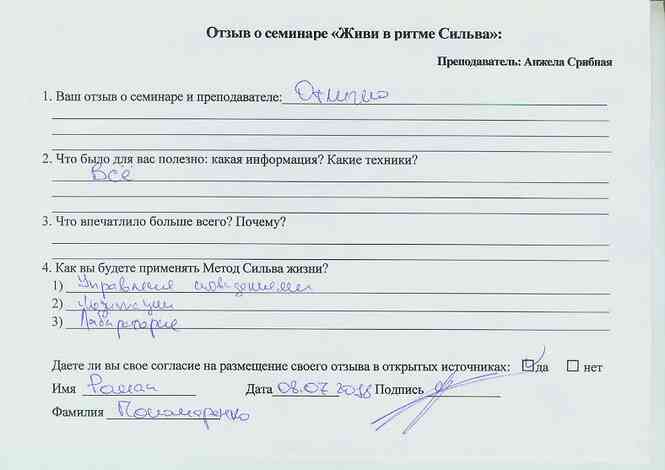 Отзыв о семинаре «Живи в ритме Сильва»:
Преподаватель: Анжела Срибная
1. Ваш отзыв о семинаре и преподавателе: Отлично
2. Что было для вас полезно: какая информация? Какие техники?
Всё
3. Что впечатлило больше всего? Почему?
4. Как вы будете применять Метод Сильва жизни?
1) Управление сновидениями
2)
3) Лаборатория
Даете ли вы свое согласие на размещение своего отзыва в открытых источниках: да нет
Имя Роман Дата 08.07.2018 Подпись
Фамилия Пономаренко